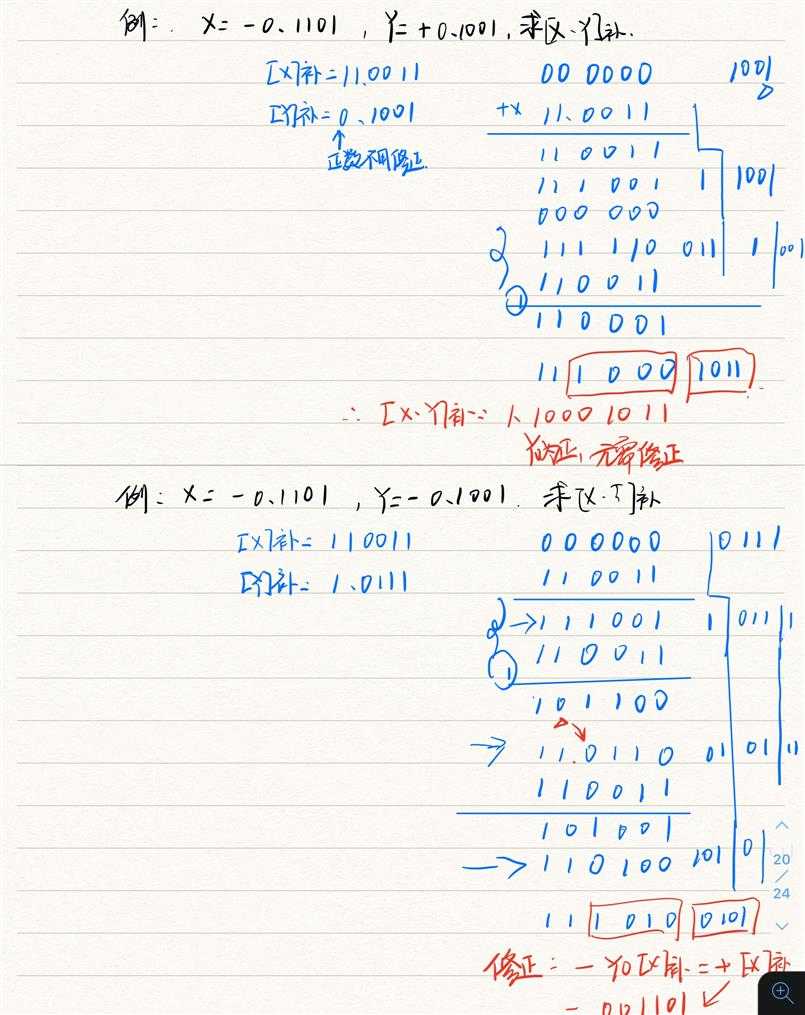 例: X = -0.1101 , Y= +0.1001, 求[X·Y]补.
[X]补=11.0011
[Y]补=0.1001
↑
正数不用修正.
00 0000 1001
+x 11.0011
11 0011
111 001 1 1001
000 000
111 110 011 1 001
110011
1
110001
11 1 000 1011
∴ [X·Y]补 = 1.1000 1011
例: X = -0.1101 , Y= -0.1001. 求[X·Y]补
[X]补= 110011
[Y]补= 1.0111
000000 0111
110011
→111001 1 011 1
110011
1
101100
→ 11.0110 01 01 11
110011
101001
→ 110100 101 0
11 1010 0101
修正: - Y0[X]补 = + [X]补
= 001101 ↙
20
/
24